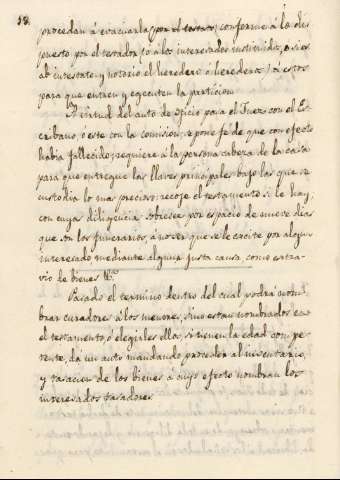 58.
procedan á evacuarla (por el testato) conforme á lo dis
puesto por el testador, ó á los interesados instituidos, ó si es
ab intestato y notorio el heredero ó herederos) á estos
para que entren y egecuten la particion.
A virtud del auto de oficio pasa el Juez con el Es
cribano, ó este con la comision; se pone fe de que con efecto
había fallecido; requiere á la persona cabeza de la casa
para que entregue las llaves principales bajo las que se
custodia lo mas precioso: recoje el testamento si le hay,
con cuya diligencia sobresee por espacio de nueve dias
que son los funerarios, á no ser que se le excite por algun
interesado mediante alguna justa causa, como extra-
vio de bienes &c.
Pasado el termino dentro del cual podrá nom-
brar curadores á los menores, sino estan nombrados en
el testamento ó elegirles ellos si tienen la edad compe-
tente, dá un auto mandando proceder al inventario,
y tasacion de los bienes á cuyo efecto nombran los
interesados tasadores.